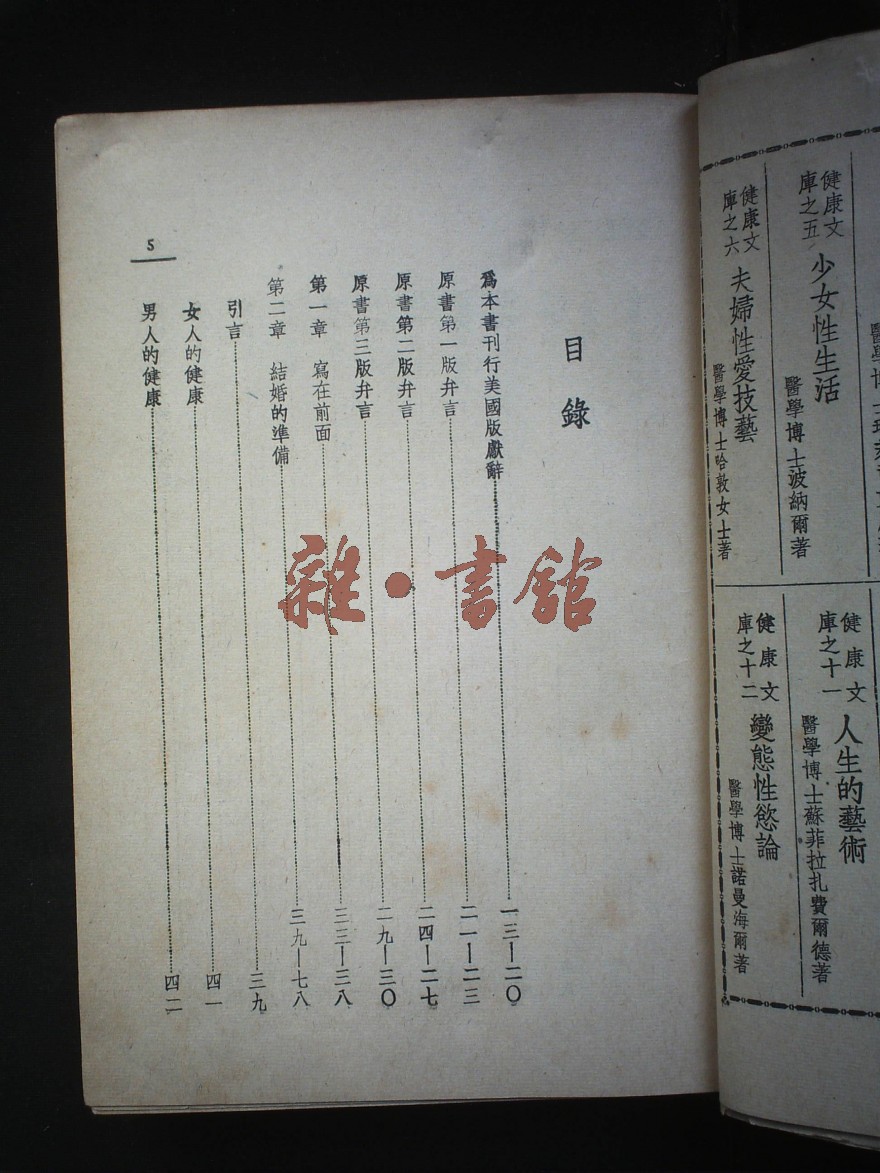 健康文庫之五 少女性生活 醫學博士波納爾著
健康文庫之六 夫婦性愛技藝 醫學博士哈敦女士著
健康文庫之十一 人生的藝術 醫學博士蘇菲拉扎費爾德著
健康文庫之十二 變態性慾論 醫學博士諾曼海爾著
目錄
爲本書刊行美國版獻辭 一三—二〇
原書第一版弁言 二一—二三
原書第二版弁言 二四—二七
原書第三版弁言 二九—三〇
第一章 寫在前面 三三—三八
第二章 結婚的準備 三九—七八
引言 三九
女人的健康 四一
男人的健康 四二
5
雜·書館